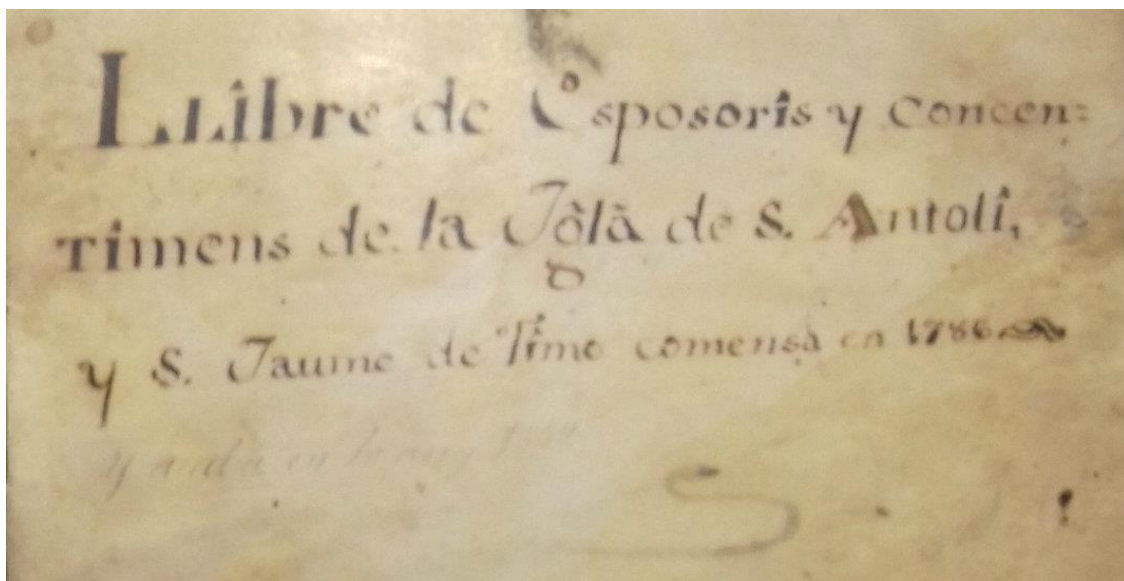 Llibre de Esposoris y Concen=
timens de la Iglà de S. Antoli,
y S. Jaume de Timo comensà en 1786
y acaba en lo any